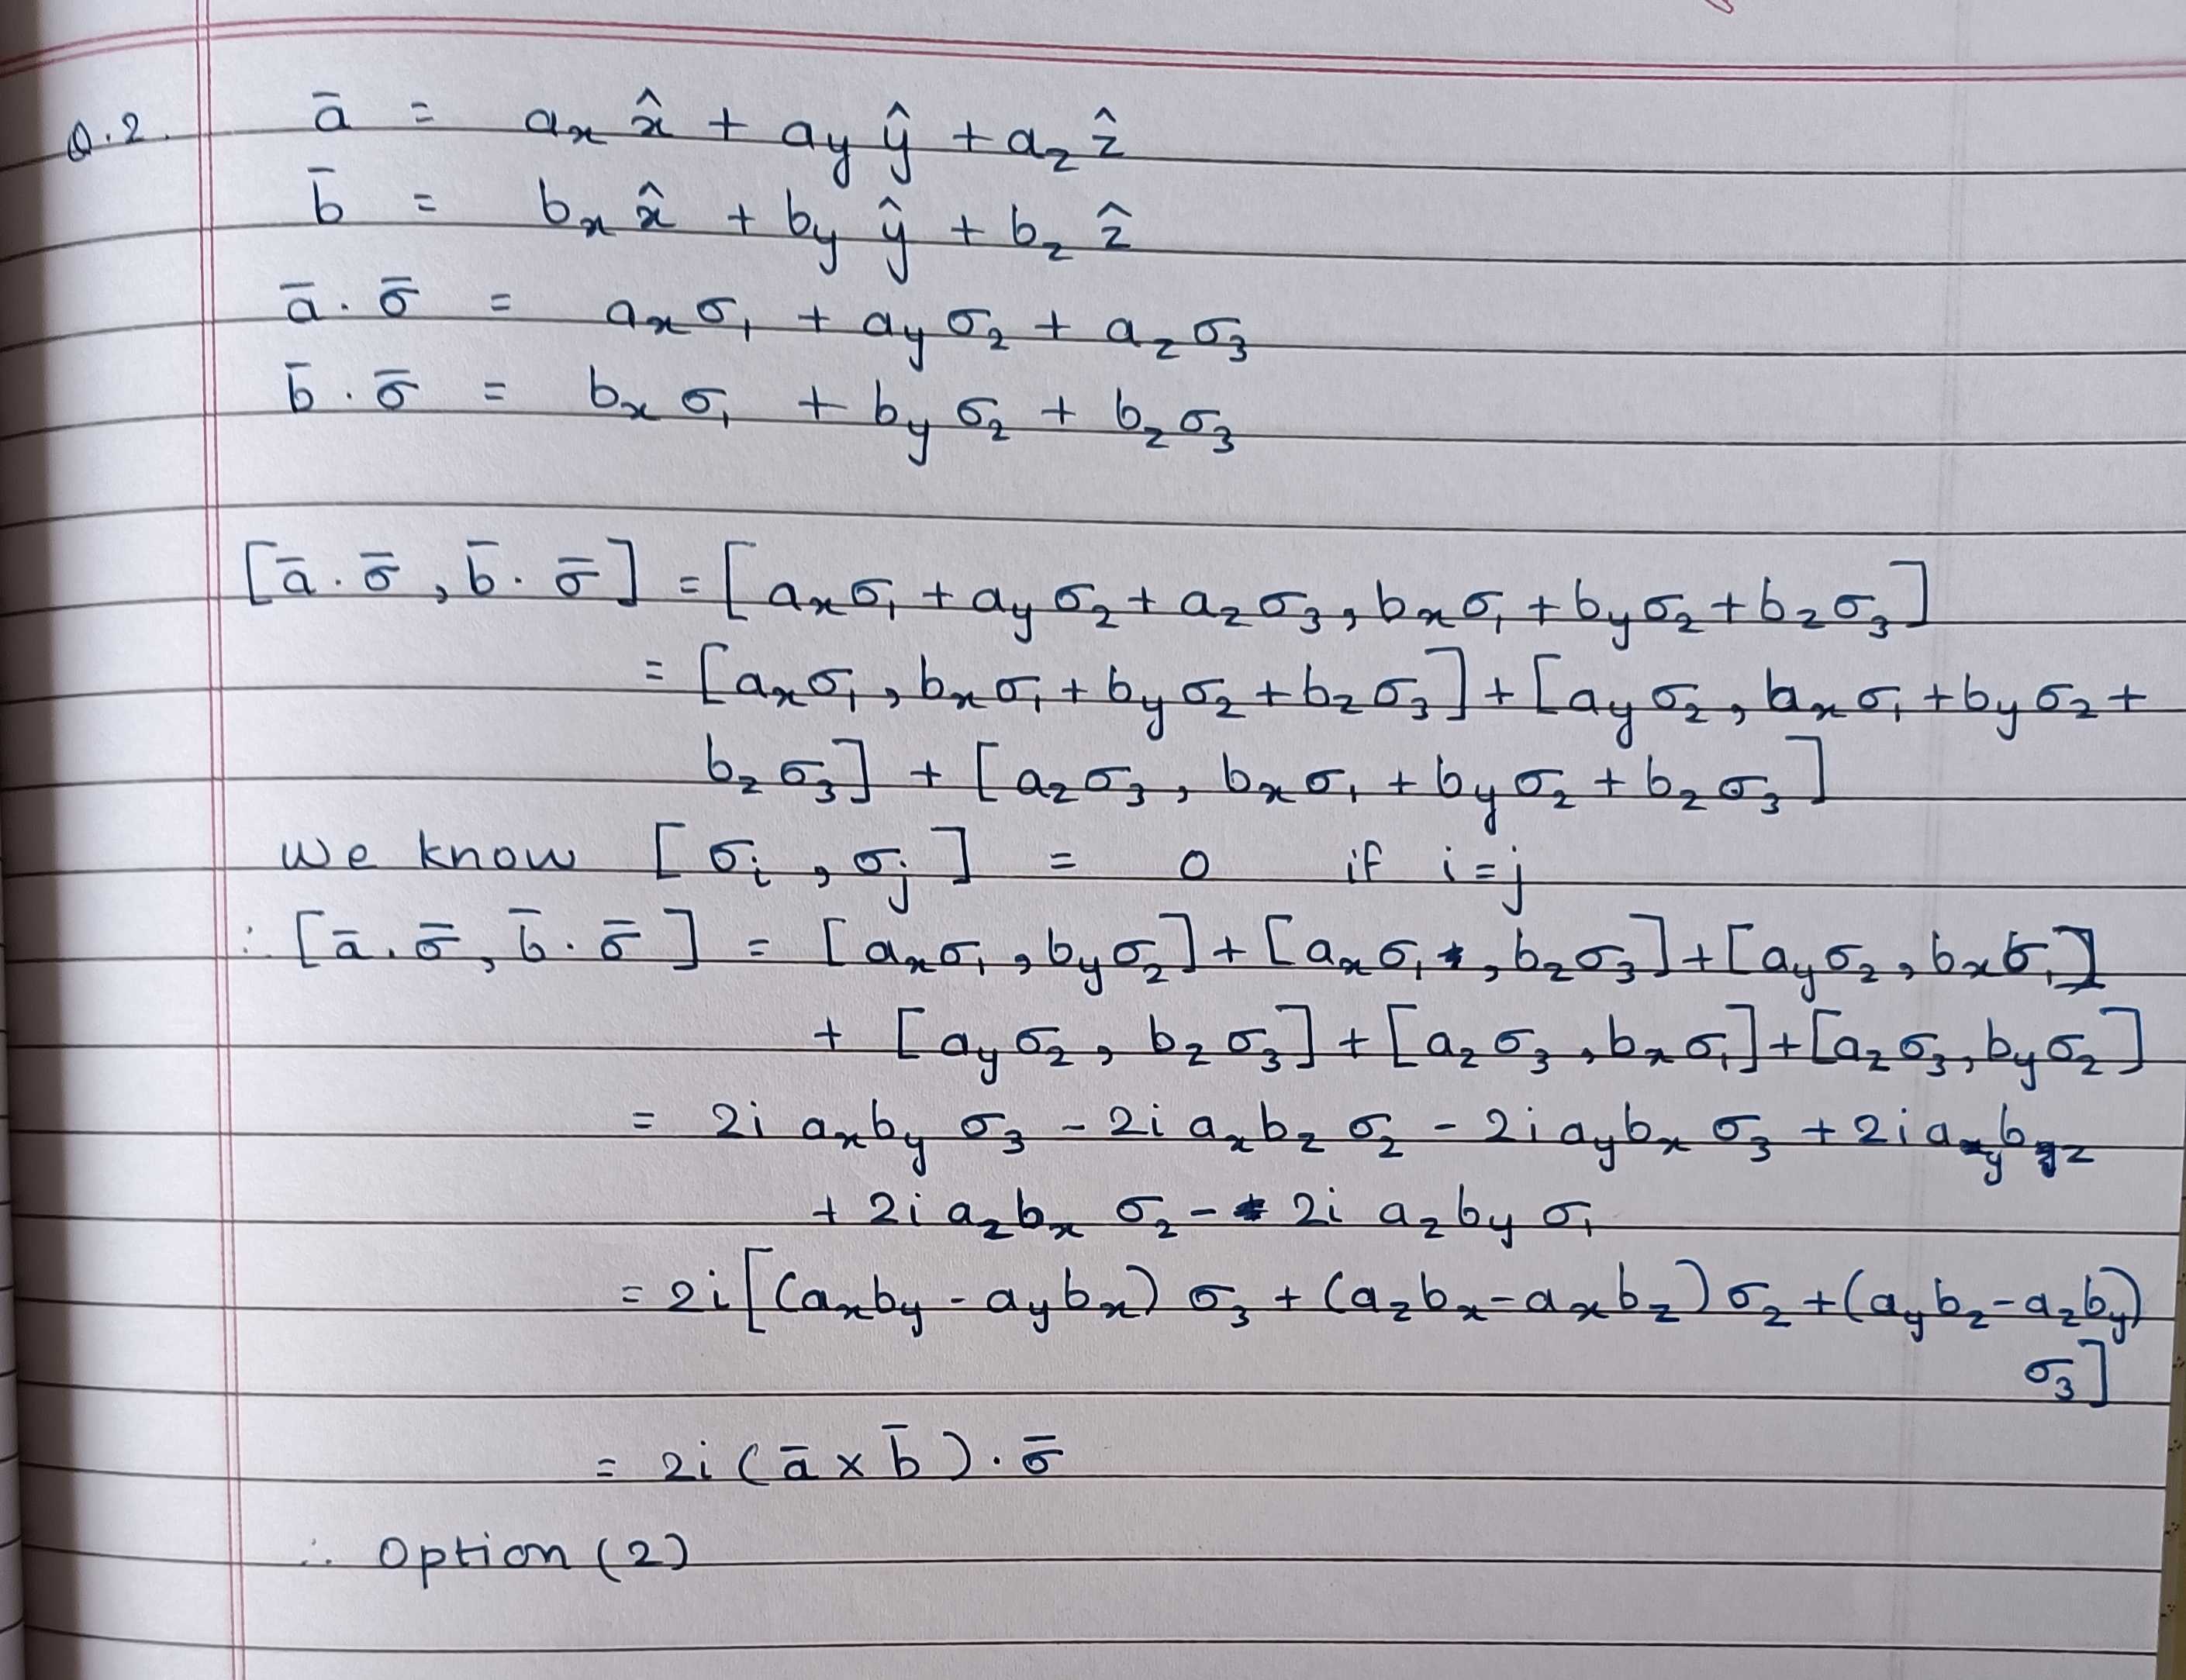 Q.2. ā = aₓ x̂ + a_y ŷ + a_z ẑ
b̄ = bₓ x̂ + b_y ŷ + b_z ẑ
ā . σ̄ = aₓ σ₁ + a_y σ₂ + a_z σ₃
b̄ . σ̄ = bₓ σ₁ + b_y σ₂ + b_z σ₃
[ā . σ̄ , b̄ . σ̄] = [aₓσ₁ + a_y σ₂ + a_z σ₃, bₓσ₁ + b_y σ₂ + b_z σ₃]
= [aₓσ₁, bₓσ₁ + b_y σ₂ + b_z σ₃] + [a_y σ₂, bₓσ₁ + b_y σ₂ +
b_z σ₃] + [a_z σ₃, bₓσ₁ + b_y σ₂ + b_z σ₃]
we know [σᵢ , σⱼ] = 0 if i = j
∴ [ā . σ̄ , b̄ . σ̄] = [aₓσ₁, b_y σ₂] + [aₓσ₁, b_z σ₃] + [a_y σ₂, bₓσ₁]
+ [a_y σ₂, b_z σ₃] + [a_z σ₃, bₓσ₁] + [a_z σ₃, b_y σ₂]
= 2i aₓb_y σ₃ - 2i aₓb_z σ₂ - 2i a_y bₓ σ₃ + 2i a_y b_z
+ 2i a_z bₓ σ₂ - 2i a_z b_y σ₁
= 2i [(aₓb_y - a_y bₓ) σ₃ + (a_z bₓ - aₓb_z) σ₂ + (a_y b_z - a_z b_y)
σ₃]
= 2i (ā × b̄) . σ̄
∴ Option (2)